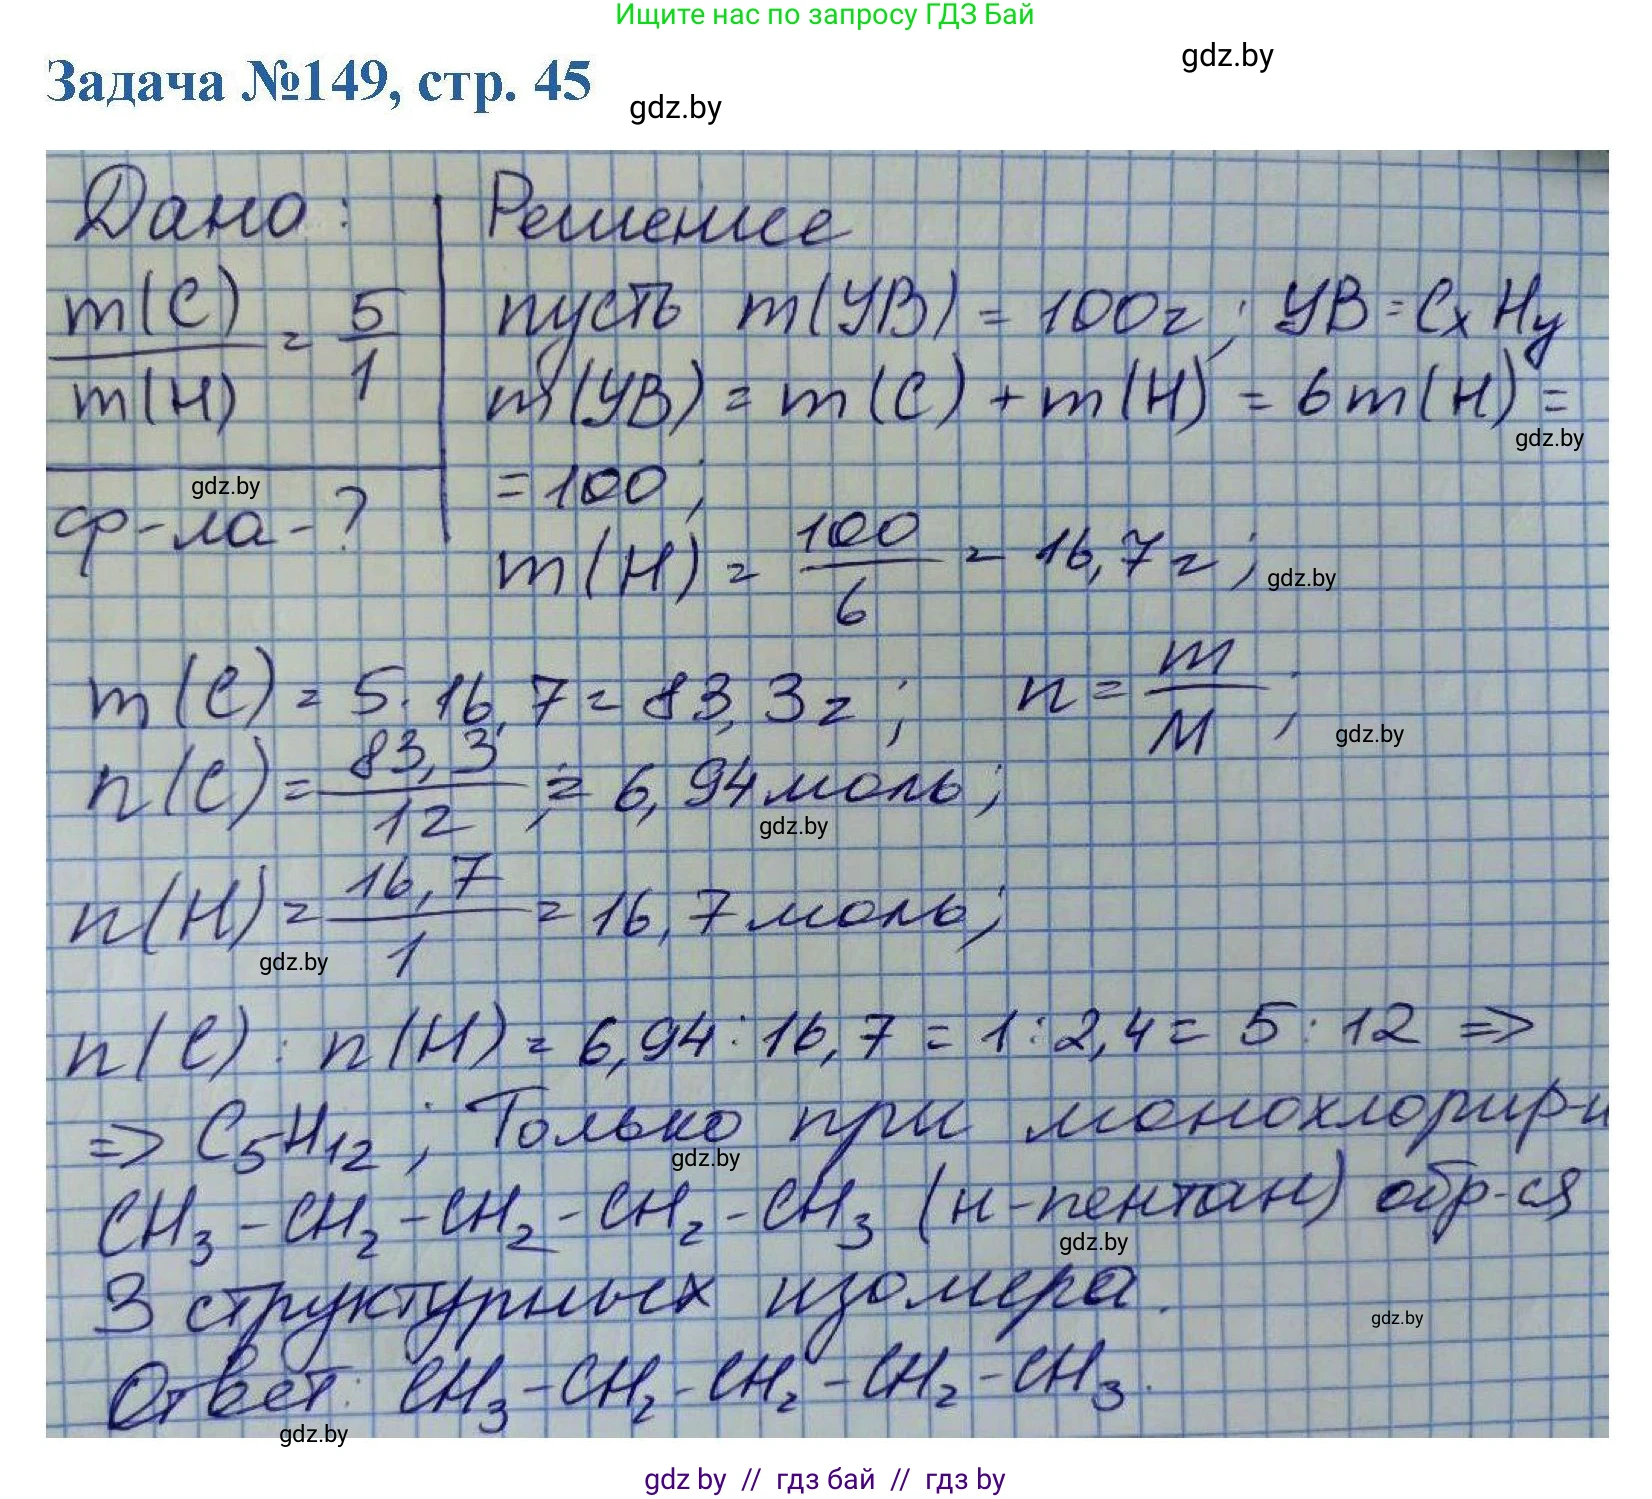 Ищите нас по запросу ГДЗ Бай
gdz.by
Задача №149, стр. 45
gdz.by
Дано:
m(C)/m(H) = 5/1
gdz.by
ф-ла-?
Решение
пусть m(УВ) = 100г; УВ = CxHy
m(УВ) = m(C) + m(H) = 6m(H) =
gdz.by
= 100;
m(H) = 100/6 = 16,7г;
gdz.by
m(C) = 5·16,7 = 83,3г; n = m/M;
gdz.by
n(C) = 83,3/12 ; = 6,94 моль;
gdz.by
n(H) = 16,7/1 = 16,7 моль;
gdz.by
n(C) : n(H) = 6,94 : 16,7 = 1 : 2,4 = 5 : 12 =>
=> C5H12; Только при монохлорир-и
gdz.by
CH3-CH2-CH2-CH2-CH3 (н-пентан) обр-ся
gdz.by
3 структурных изомера.
gdz.by
Ответ: CH3-CH2-CH2-CH2-CH3.
gdz.by
gdz by // гдз бай // гдз by